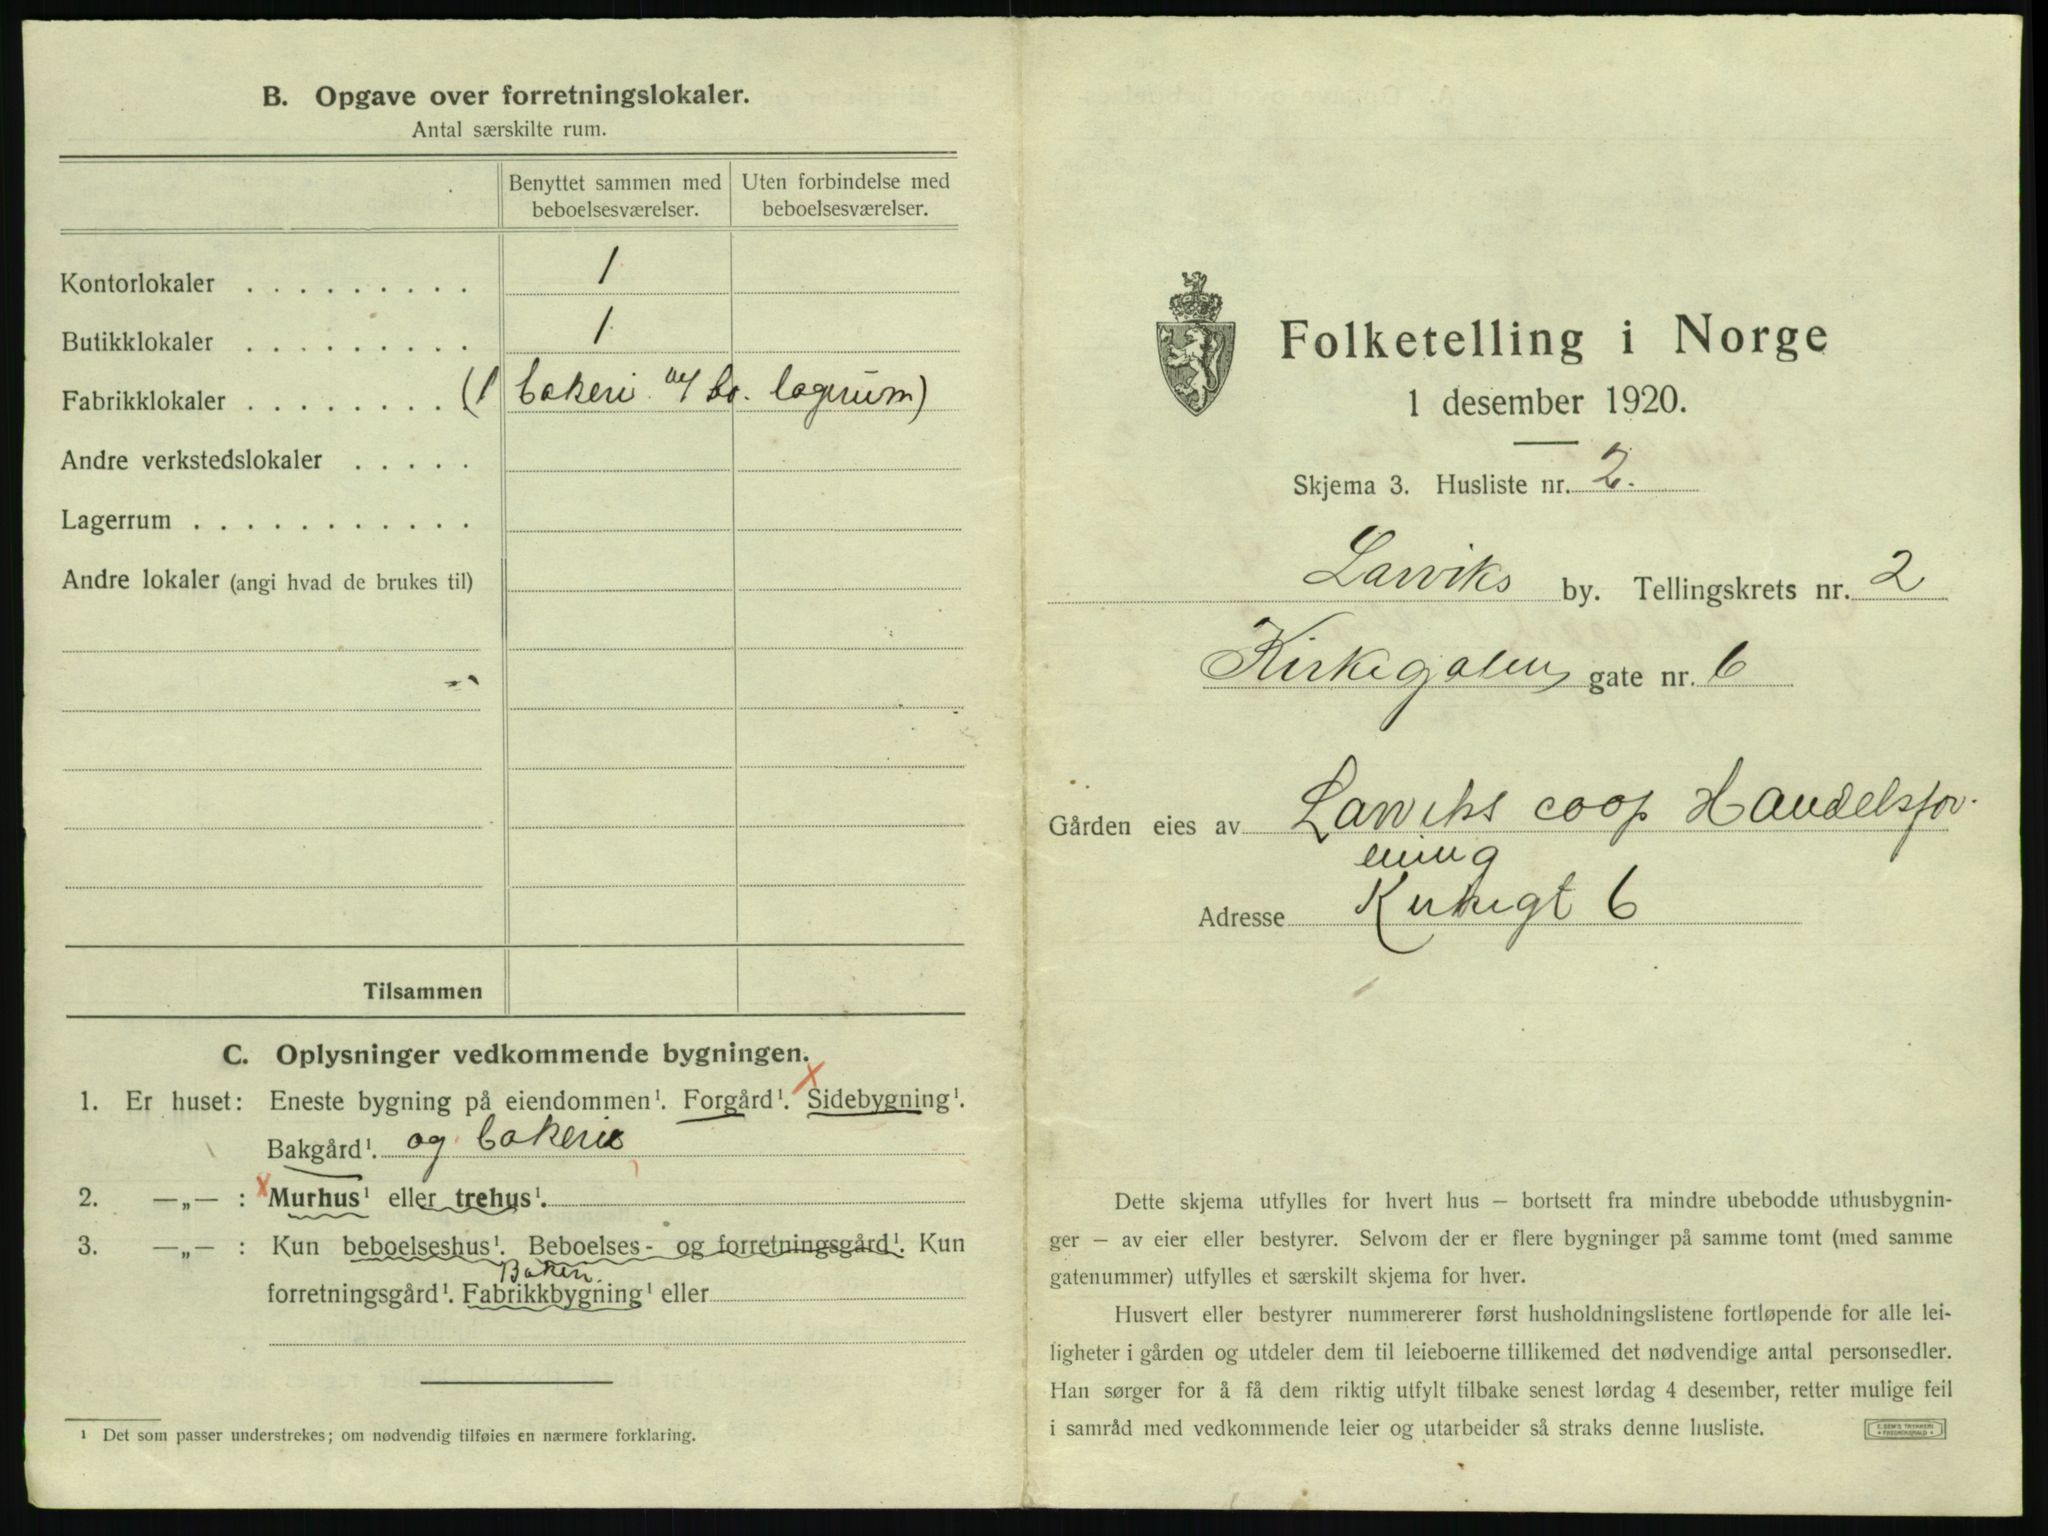 B. Opgave over forretningslokaler.
Antal særskilte rum.
Benyttet sammen med beboelsesværelser.
Uten forbindelse med beboelsesværelser.
Kontorlokaler . . . . . . . . . 1
Butikklokaler . . . . . . . . . 1
Fabrikklokaler . . . . . . . . (1 bakeri m/ lagerum)
Andre verkstedslokaler . . . . .
Lagerrum . . . . . . . . . . .
Andre lokaler (angi hvad de brukes til)
Tilsammen
C. Oplysninger vedkommende bygningen.
1. Er huset: Eneste bygning på eiendommen¹. Forgård¹. x Sidebygning¹.
Bakgård¹. og bakeri
2. —„— : x Murhus¹ eller trehus¹.
3. —„— : Kun beboelseshus¹. Beboelses- og forretningsgård¹. Kun
Bakeri
forretningsgård¹. Fabrikkbygning¹ eller
¹ Det som passer understrekes; om nødvendig tilføies en nærmere forklaring.
Folketelling i Norge
1 desember 1920.
Skjema 3. Husliste nr. 2.
Larviks by. Tellingskrets nr. 2
Kirkegatens gate nr. 6
Gården eies av Larviks coop Handelsfor-
ening
Adresse Kirkegt 6
Dette skjema utfylles for hvert hus – bortsett fra mindre ubebodde uthusbygnin-
ger – av eier eller bestyrer. Selvom der er flere bygninger på samme tomt (med samme
gatenummer) utfylles et særskilt skjema for hver.
Husvert eller bestyrer nummererer først husholdningslistene fortløpende for alle lei-
ligheter i gården og utdeler dem til leieboerne tillikemed det nødvendige antal personsedler.
Han sørger for å få dem riktig utfylt tilbake senest lørdag 4 desember, retter mulige feil
i samråd med vedkommende leier og utarbeider så straks denne husliste.
E. SEM'S TRYKKERI
FREDRIKSHALD